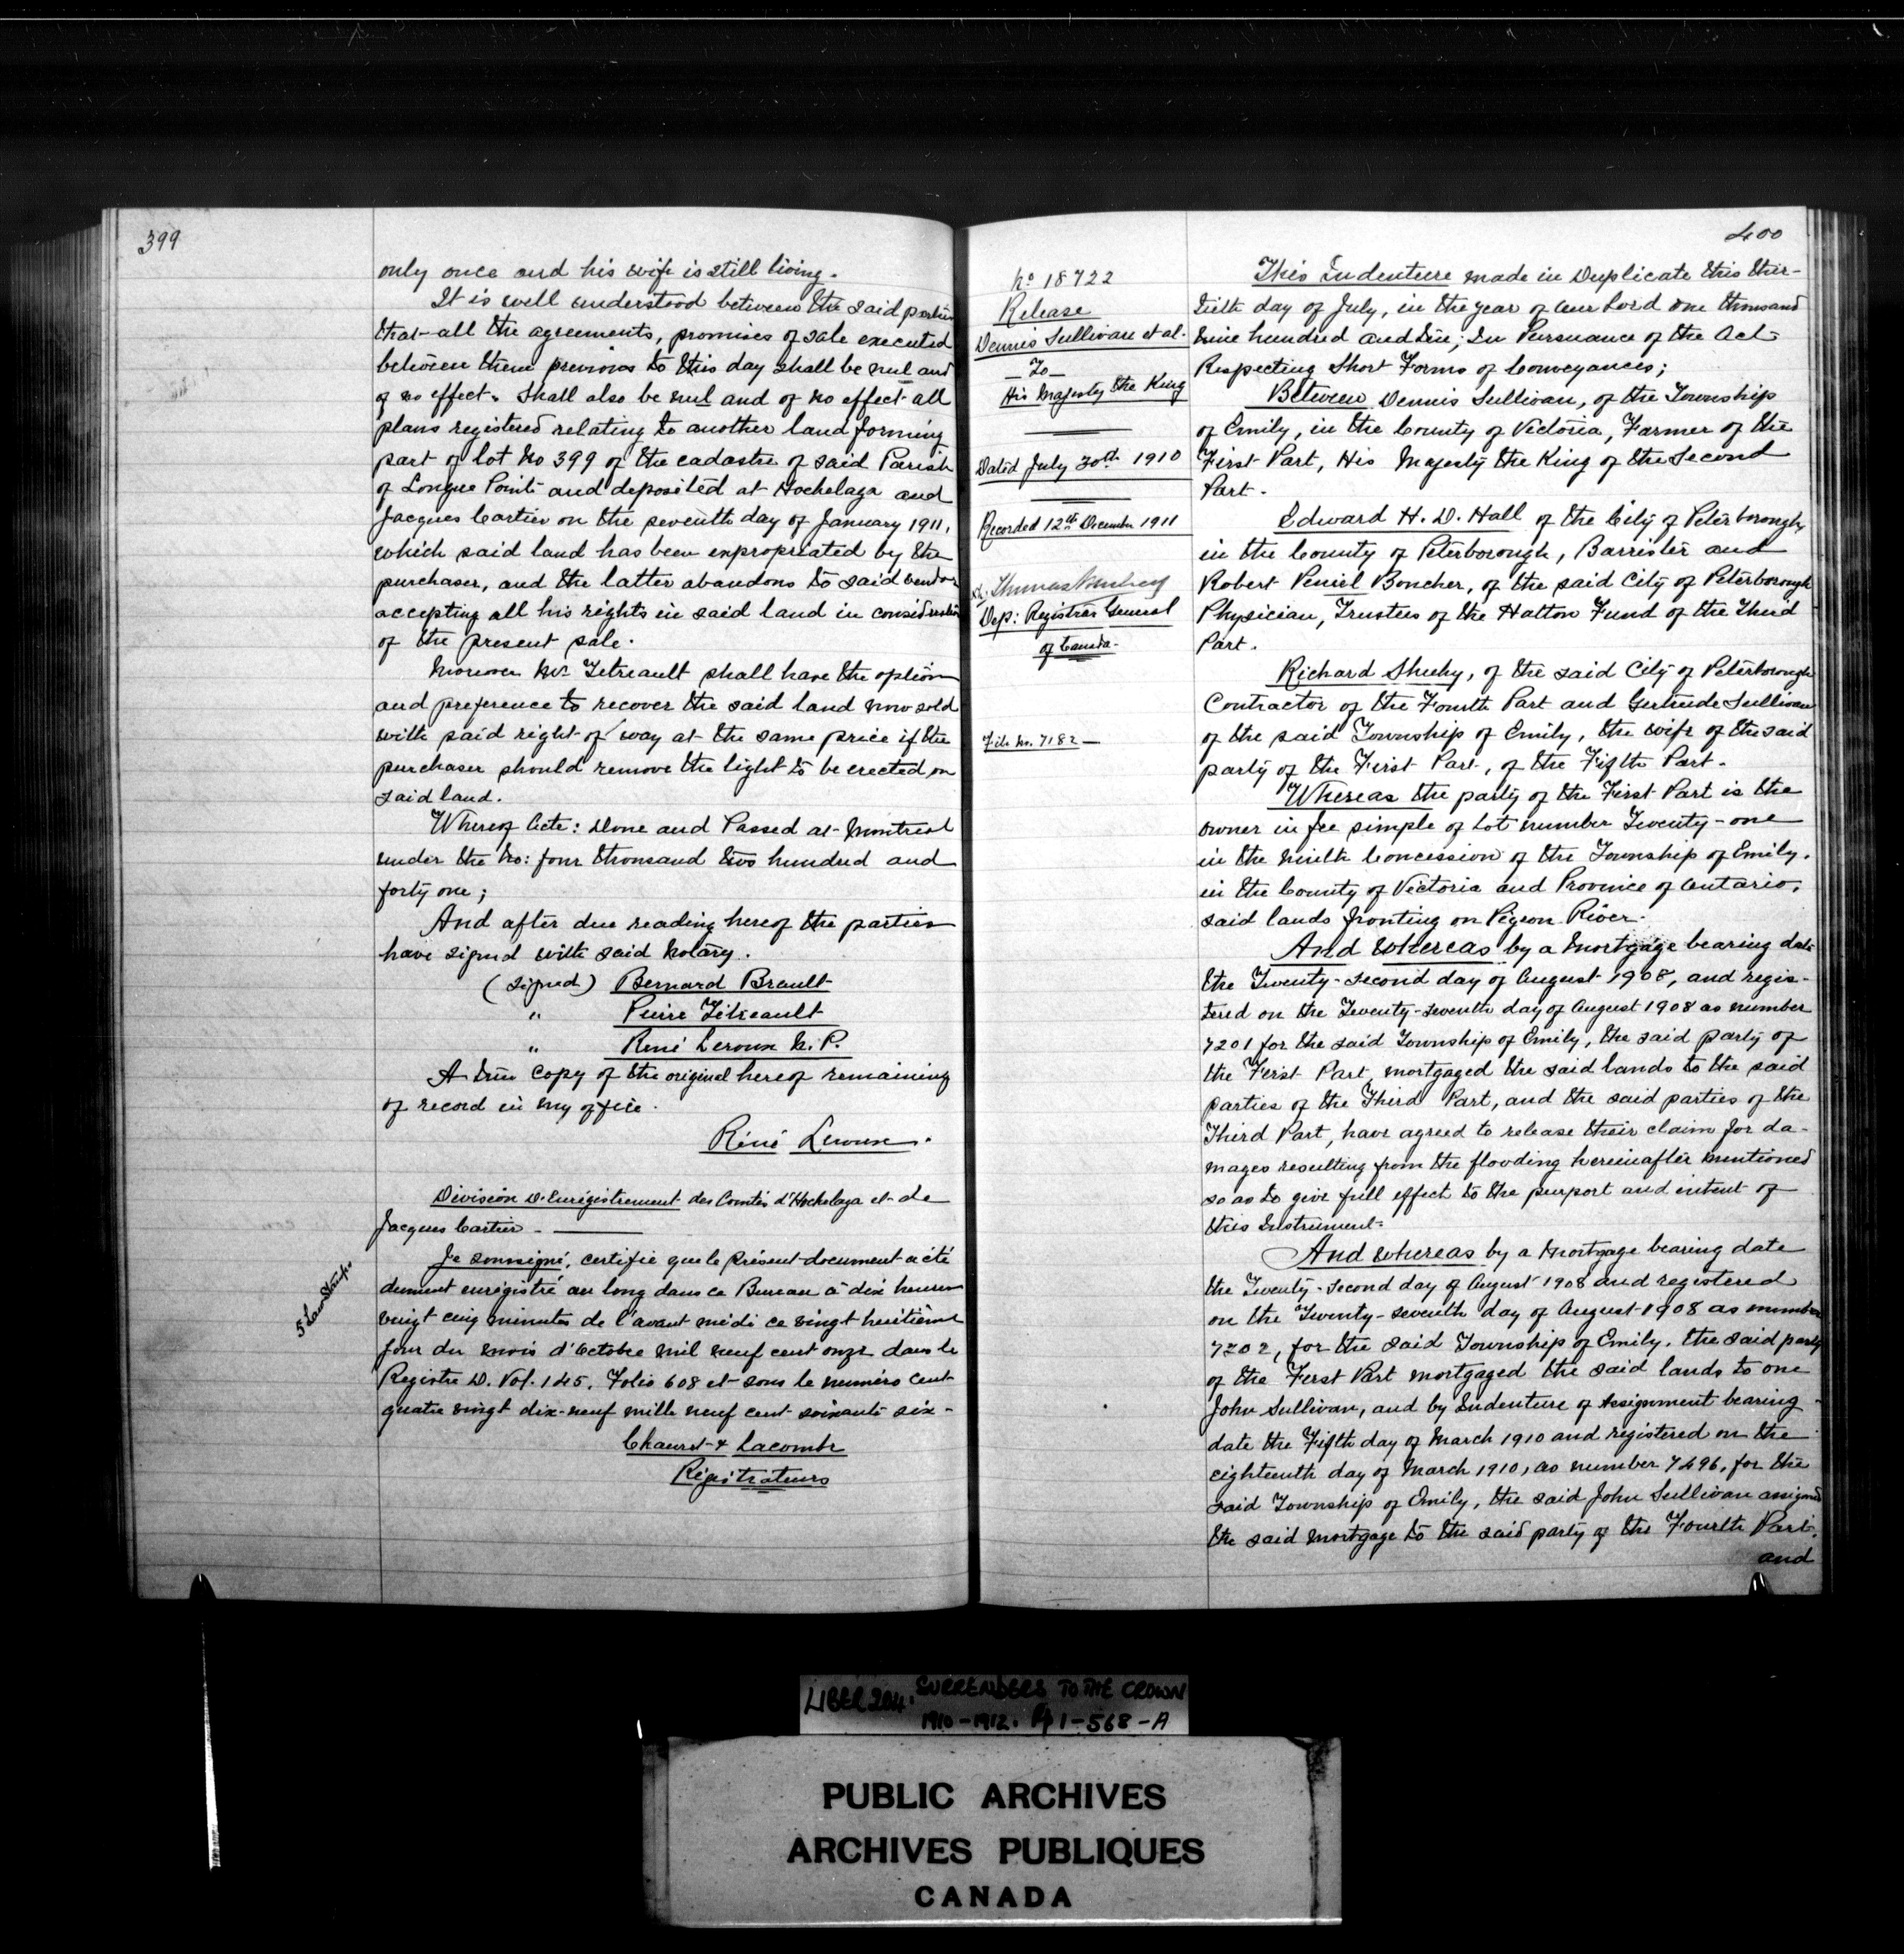 399
only once and his wife is still living.
It is well understood between the said parties
that all the agreements, promises of sale executed
between them previous to this day shall be nul and
of no effect. Shall also be nul and of no effect all
plans registered relating to another land forming
part of lot No 399 of the cadastre of said Parish
of Longue Pointe and deposited at Hochelaga and
Jacques Cartier on the seventh day of January 1911,
which said land has been expropriated by the
purchaser, and the latter abandons to said vendor
accepting all his rights in said land in consideration
of the present sale.
Moreover Mr. Tetreault shall have the option
and preference to recover the said land now sold
with said right of way at the same price if the
purchaser should remove the light to be erected on
said land.
Whereof Acte: Done and Passed at Montreal
under the No: four thousand two hundred and
forty one;
And after due reading hereof the parties
have signed with said Notary.
(signed) Bernard Brault
" Pierre Tétreault
" René Leroux N.P.
A true copy of the original hereof remaining
of record in my office.
Réné Leroux.
Division D. Enregistrement des Comtés d'Hochelaga et de
Jacques Cartier
5 Law Stamps
Je soussigné, certifie que le présent document a été
dument enrégistré au long dans ce Bureau à dix heures
vingt cinq minutes de l'avant midi ce vingt huitième
jour du mois d'Octobre mil neuf cent onze dans le
Registre D. Vol. 145. Folio 608 et sous le numéro cent
quatre vingt dix-neuf mille neuf cent soixante six -
Chauret & Lacombe
Régistrateurs
400
No 18722
Release
Dennis Sullivan et al.
To
His Majesty the King
Dated July 30th 1910
Recorded 12th December 1911
Dep: Registrar General
of Canada.
File No. 7182
This Indenture made in Duplicate this thir-
tieth day of July, in the year of Our Lord one thousand
nine hundred and ten; In Pursuance of the Act
Respecting Short Forms of Conveyances;
Between Dennis Sullivan, of the Township
of Emily, in the County of Victoria, Farmer of the
First Part, His Majesty the King of the Second
Part.
Edward H. D. Hall of the City of Peterborough,
in the County of Peterborough, Barrister and
Robert Peniel Boucher, of the said City of Peterborough
Physician, Trustees of the Hatton Fund of the Third
Part.
Richard Sheehy, of the said City of Peterborough
Contractor of the Fourth Part and Gertrude Sullivan
of the said Township of Emily, the wife of the said
party of the First Part, of the Fifth Part.
Whereas the party of the First Part is the
owner in fee simple of Lot number Twenty-one
in the Ninth Concession of the Township of Emily,
in the County of Victoria and Province of Ontario,
said lands fronting on Pigeon River.
And whereas by a Mortgage bearing date
the Twenty-second day of August 1908, and regis-
tered on the Twenty-seventh day of August 1908 as number
7201 for the said Township of Emily, the said party of
the First Part, mortgaged the said lands to the said
parties of the Third Part, and the said parties of the
Third Part, have agreed to release their claim for da-
mages resulting from the flooding hereinafter mentioned
so as to give full effect to the purport and intent of
this Instrument.
And whereas by a Mortgage bearing date
the Twenty-second day of August 1908 and registered
on the Twenty-seventh day of August 1908 as number
7202, for the said Township of Emily, the said party
of the First Part mortgaged the said lands to one
John Sullivan, and by Indenture of Assignment bearing
date the Fifth day of March 1910 and registered on the
eighteenth day of March 1910, as number 7496, for the
said Township of Emily, the said John Sullivan assigned
the said mortgage to the said party of the Fourth Part,
and
LIBER 204. SURRENDERS TO THE CROWN
1910-1912. Pp 1-568-A
PUBLIC ARCHIVES
ARCHIVES PUBLIQUES
CANADA